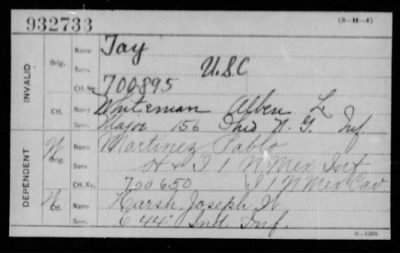 932733 (3-11-4)
INVALID
Orig. Name, Tay
Serv. U.S.C
Ctf. No. 700895
Ctf. Name, Whiteman Alben L
Serv. Major 156 Ind N. G. Inf.
DEPENDENT
W Orig. Name, Martinez Pablo
Serv. H & I 1 N Mex Inft
Ctf. No. 700650 I 1 N Mex Cav
Ctf. Name, Harsh, Joseph W
Serv. E 44" Ind. Inf.